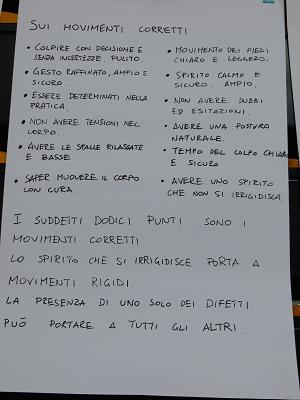 SUI MOVIMENTI CORRETTI.
• COLPIRE CON DECISIONE E
SENZA INCERTEZZE. PULITO.
• GESTO RAFFINATO, AMPIO E
SICURO.
• ESSERE DETERMINATI NELLA
PRATICA.
• NON AVERE TENSIONI NEL
CORPO.
• AVERE LE SPALLE RILASSATE
E BASSE
• SAPER MUOVERE IL CORPO
CON CURA.
• MOVIMENTO DEI PIEDI
CHIARO E LEGGERO.
• SPIRITO CALMO E
SICURO. AMPIO.
• NON AVERE DUBBI
ED ESITAZIONI.
• AVERE UNA POSTURA
NATURALE.
• TEMPO DEL COLPO CHIARO
E SICURO
• AVERE UNO SPIRITO
CHE NON SI IRRIGIDISCA.
I SUDDETTI DODICI PUNTI SONO I
MOVIMENTI CORRETTI.
LO SPIRITO CHE SI IRRIGIDISCE PORTA A
MOVIMENTI RIGIDI.
LA PRESENZA DI UNO SOLO DEI DIFETTI
PUÓ PORTARE A TUTTI GLI ALTRI.